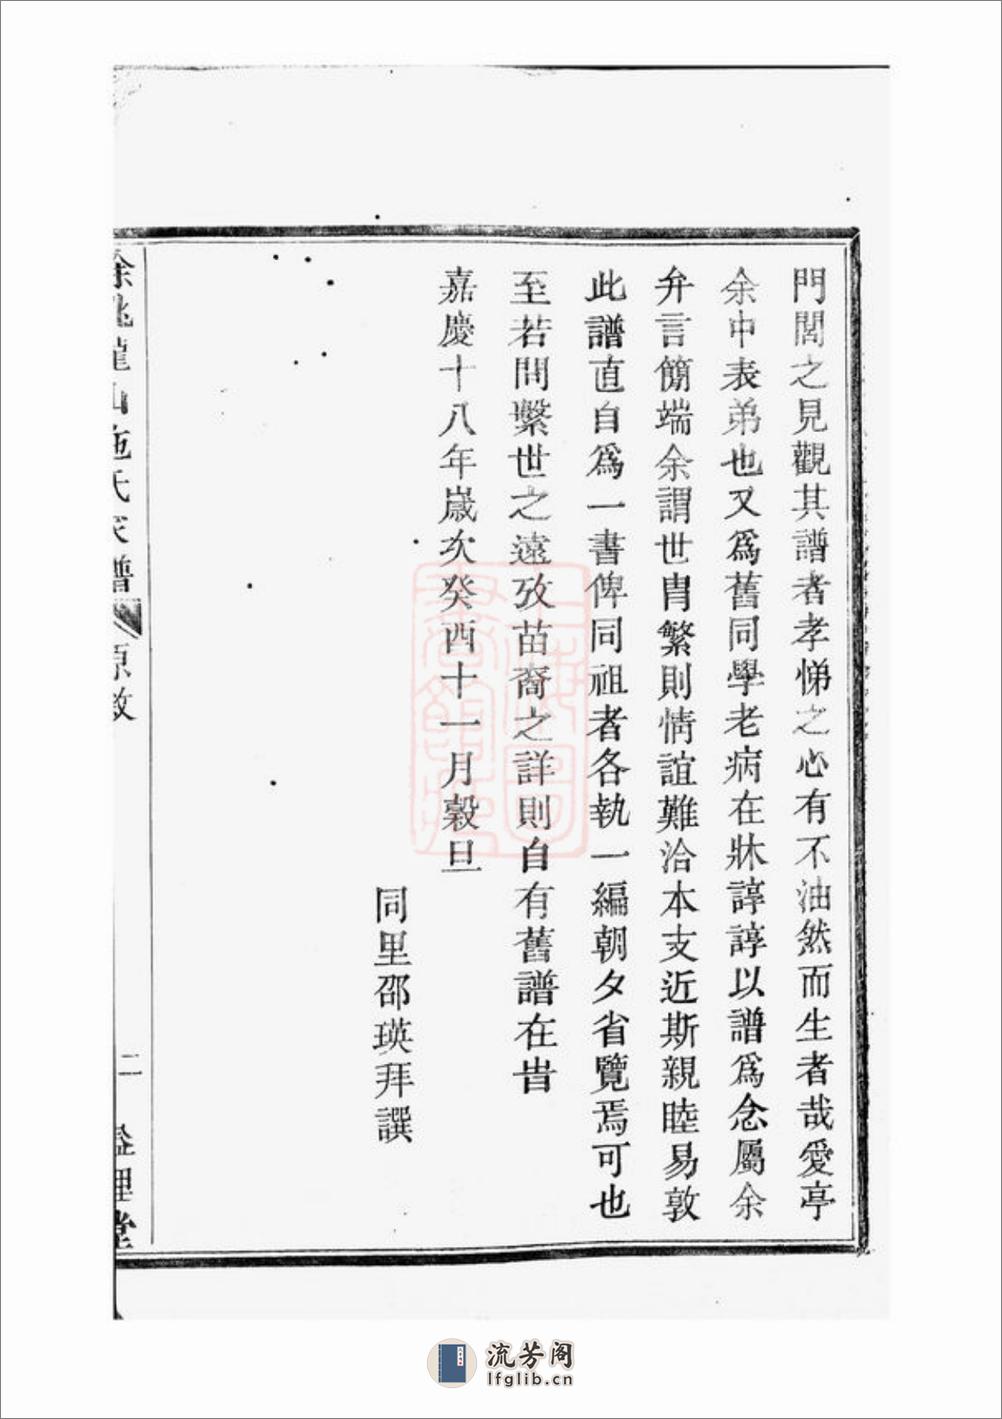 門閭之見觀其譜者孝悌之心有不油然而生者哉愛亭
余中表弟也又爲舊同學老病在牀諄諄以譜爲念屬余
弁言簡端余謂世胄繁則情誼難洽本支近斯親睦易敦
此譜直自爲一書俾同祖者各執一編朝夕省覽焉可也
至若問繫世之遠攷苗裔之詳則自有舊譜在旹
嘉慶十八年歲次癸酉十一月穀旦
同里邵瑛拜譔
餘姚龍山施氏家譜
原敘
二
流芳阁
lfglib.cn